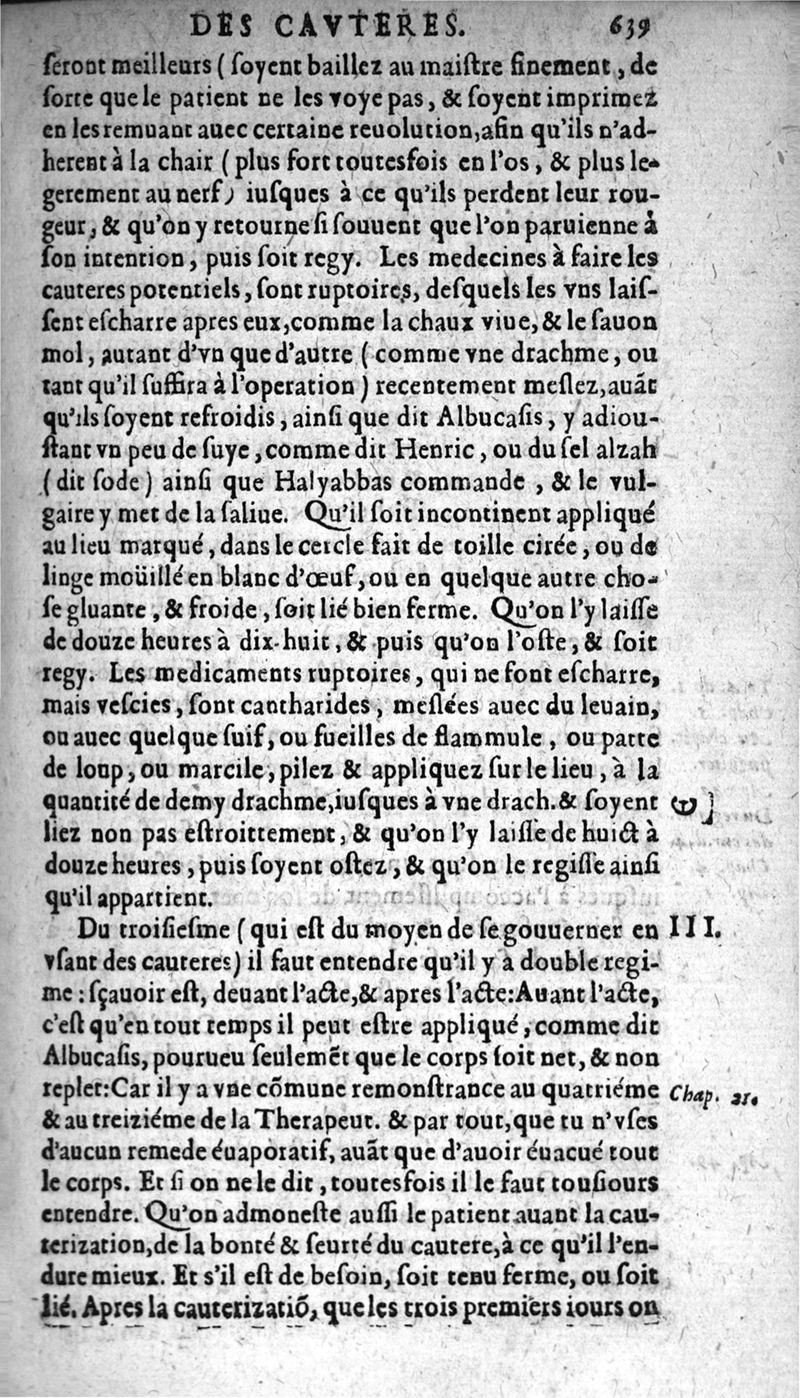 DES CAVTERES. 639
ſeront meilleurs ( ſoyent baillez au maiſtre finement, de
ſorte que le patient ne les voye pas, & ſoyent imprimez
en les remuant auec certaine reuolution, afin qu'ils n'ad-
herent à la chair ( plus fort toutesfois en l'os, & plus le-
gerement au nerf) iuſques à ce qu'ils perdent leur rou-
geur, & qu'on y retourne ſi ſouuent que l'on paruienne à
ſon intention, puis ſoit regy. Les medecines à faire les
cauteres potentiels, ſont ruptoires, deſquels les vns laiſ-
ſent eſcharre apres eux, comme la chaux viue, & le ſauon
mol, autant d'vn que d'autre ( comme vne drachme, ou
tant qu'il ſuffira à l'operation ) recentement meſlez, auāt
qu'ils ſoyent refroidis, ainſi que dit Albucaſis, y adiou-
ſtant vn peu de ſuye, comme dit Henric, ou du ſel alzah
( dit ſode ) ainſi que Halyabbas commande , & le vul-
gaire y met de la ſaliue. Qu'il ſoit incontinent appliqué
au lieu marqué, dans le cercle fait de toille cirée, ou de
linge moüillé en blanc d'œuf, ou en quelque autre cho-
ſe gluante, & froide, ſoit lié bien ferme. Qu'on l'y laiſſe
de douze heures à dix-huit, & puis qu'on l'oſte, & ſoit
regy. Les medicaments ruptoires, qui ne font eſcharre,
mais veſcies, ſont cantharides, meſlées auec du leuain,
ou auec quelque ſuif, ou fueilles de flammule, ou patte
de loup, ou marcile, pilez & appliquez ſur le lieu, à la
quantité de demy drachme, iuſques à vne drach. & ſoyent
liez non pas eſtroittement, & qu'on l'y laiſſe de huict à
douze heures, puis ſoyent oſtez, & qu'on le regiſſe ainſi
qu'il appartient.
Du troiſieſme ( qui eſt du moyen de ſe gouuerner en III.
vſant des cauteres) il faut entendre qu'il y a double regi-
me : ſçauoir eſt, deuant l'acte, & apres l'acte: Auant l'acte,
c'eſt qu'en tout temps il peut eſtre appliqué, comme dit
Albucaſis, pourueu ſeulemēt que le corps ſoit net, & non
replet: Car il y a vne cōmune remonſtrance au quatriéme Chap. 21.
& au treiziéme de la Therapeut. & par tout, que tu n'vſes
d'aucun remede éuaporatif, auāt que d'auoir éuacué tout
le corps. Et ſi on ne le dit, toutesfois il le faut touſiours
entendre. Qu'on admoneſte auſſi le patient auant la cau-
terization, de la bonté & ſeurté du cautere, à ce qu'il l'en-
dure mieux. Et s'il eſt de beſoin, ſoit tenu ferme, ou ſoit
lié. Apres la cauterizatiō, que les trois premiers iours on